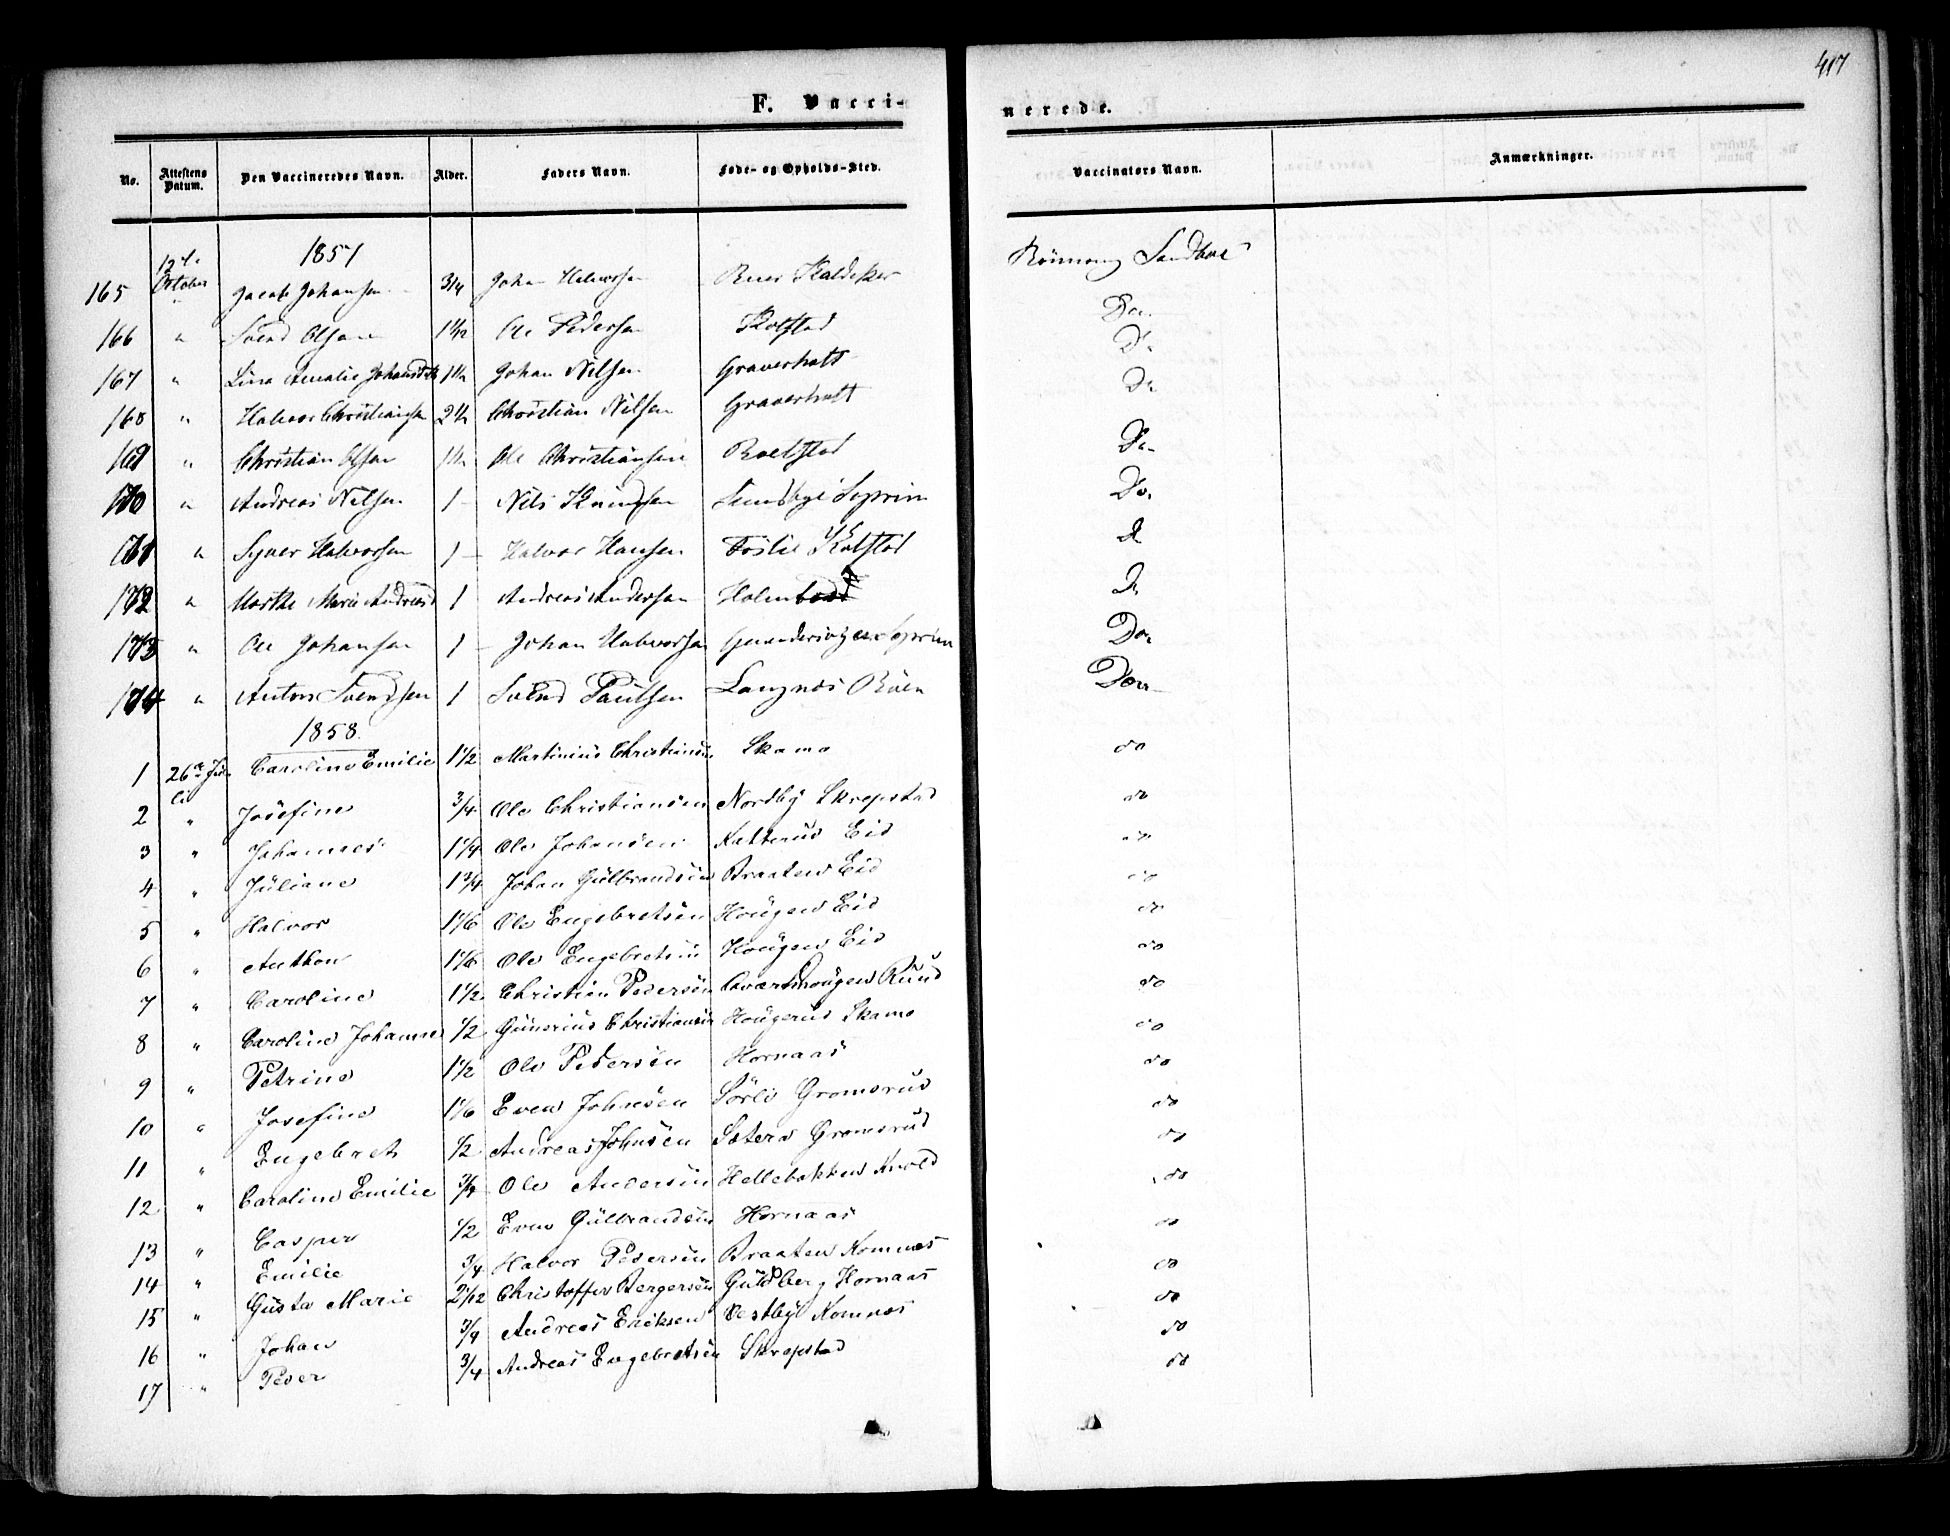 417
F. Vacci-
nerede.
No. Attestens Datum. Den Vaccineredes Navn. Alder. Faders Navn. Føde- og Opholds-Sted. Vaccinators Navn. Anmærkninger.
1857
165 12te October Jacob Johansen 3/4 Johan Halvorsen
166 " Svend Olsen Ole Pedersen Kolstad Do
167 " Lina Amalie Johansd Johan Nilsen Graverholt Do
168 " Halvor Christiansen Christian Nilsen Graverholt Do
169 " Christian Olsen Ole Christiansen Do
170 " Andreas Nilsen 1 Nils Knudsen Do
171 " Syver Halvorsen 1 Halvor Hansen Kolstad Do
172 " Marthe Marie Andreasd 1 Andreas Andersen Do
173 " Ole Johansen 1 Johan Halvorsen Do
174 " Anton Svendsen 1 Svend Paulsen Langnæs Do
1858
1 26de Juli Caroline Emilie 1 1/2 Martinius Christiansen Skamo do
2 " Josefine 3/4 Ole Christiansen Nordby Skrepstad do
3 " Johannes 1 1/4 Ole Johansen Katterud Eid do
4 " Juliane 1 3/4 Johan Gulbrandsen Braaten Eid do
5 " Halvor 1 1/6 Ole Engebretsen Hougen Eid do
6 " Anthon 1 1/6 Ole Engebretsen Hougen Eid do
7 " Caroline 1 1/2 Christian Pedersen Ruud do
8 " Caroline Johanne 1/2 Gunerius Christiansen Hougerud Skamo do
9 " Petrine 1 1/2 Ole Pedersen Hornaas do
10 " Josefine 1 1/6 Even Johnsen Sörli Gromsrud do
11 " Engebret 1/2 Andreas Johnsen Sætern Gromsrud do
12 " Caroline Emilie 3/4 Ole Andersen Hellebakken Kvold do
13 " Casper 1/2 Even Gulbrandsen Hornaas do
14 " Emilie 3/4 Halvor Pedersen Braaten Komnæs do
15 " Gusta Marie 2 1/12 Christoffer Bergersen Guldberg Hornaas do
16 " Johan 3/4 Andreas Eriksen Vestby Komnæs do
17 " Peder 3/4 Andreas Engebretsen Skrepstad do